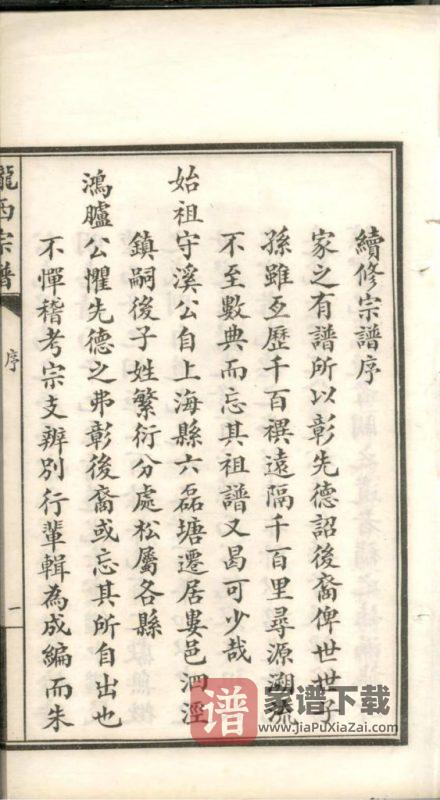 續修宗譜序
家之有譜所以彰先德詔後裔俾世世子
孫雖亙歷千百禩遠隔千百里尋源溯流
不至數典而忘其祖譜又曷可少哉
始祖守溪公自上海縣六磊塘遷居婁邑泗涇
鎮嗣後子姓繁衍分處松屬各縣
鴻臚公懼先德之弗彰後裔或忘其所自出也
不憚稽考宗支辨別行輩輯為成編而朱
隴西宗譜
序
一
譜
家谱下载
www.JiaPuXiaZai.com